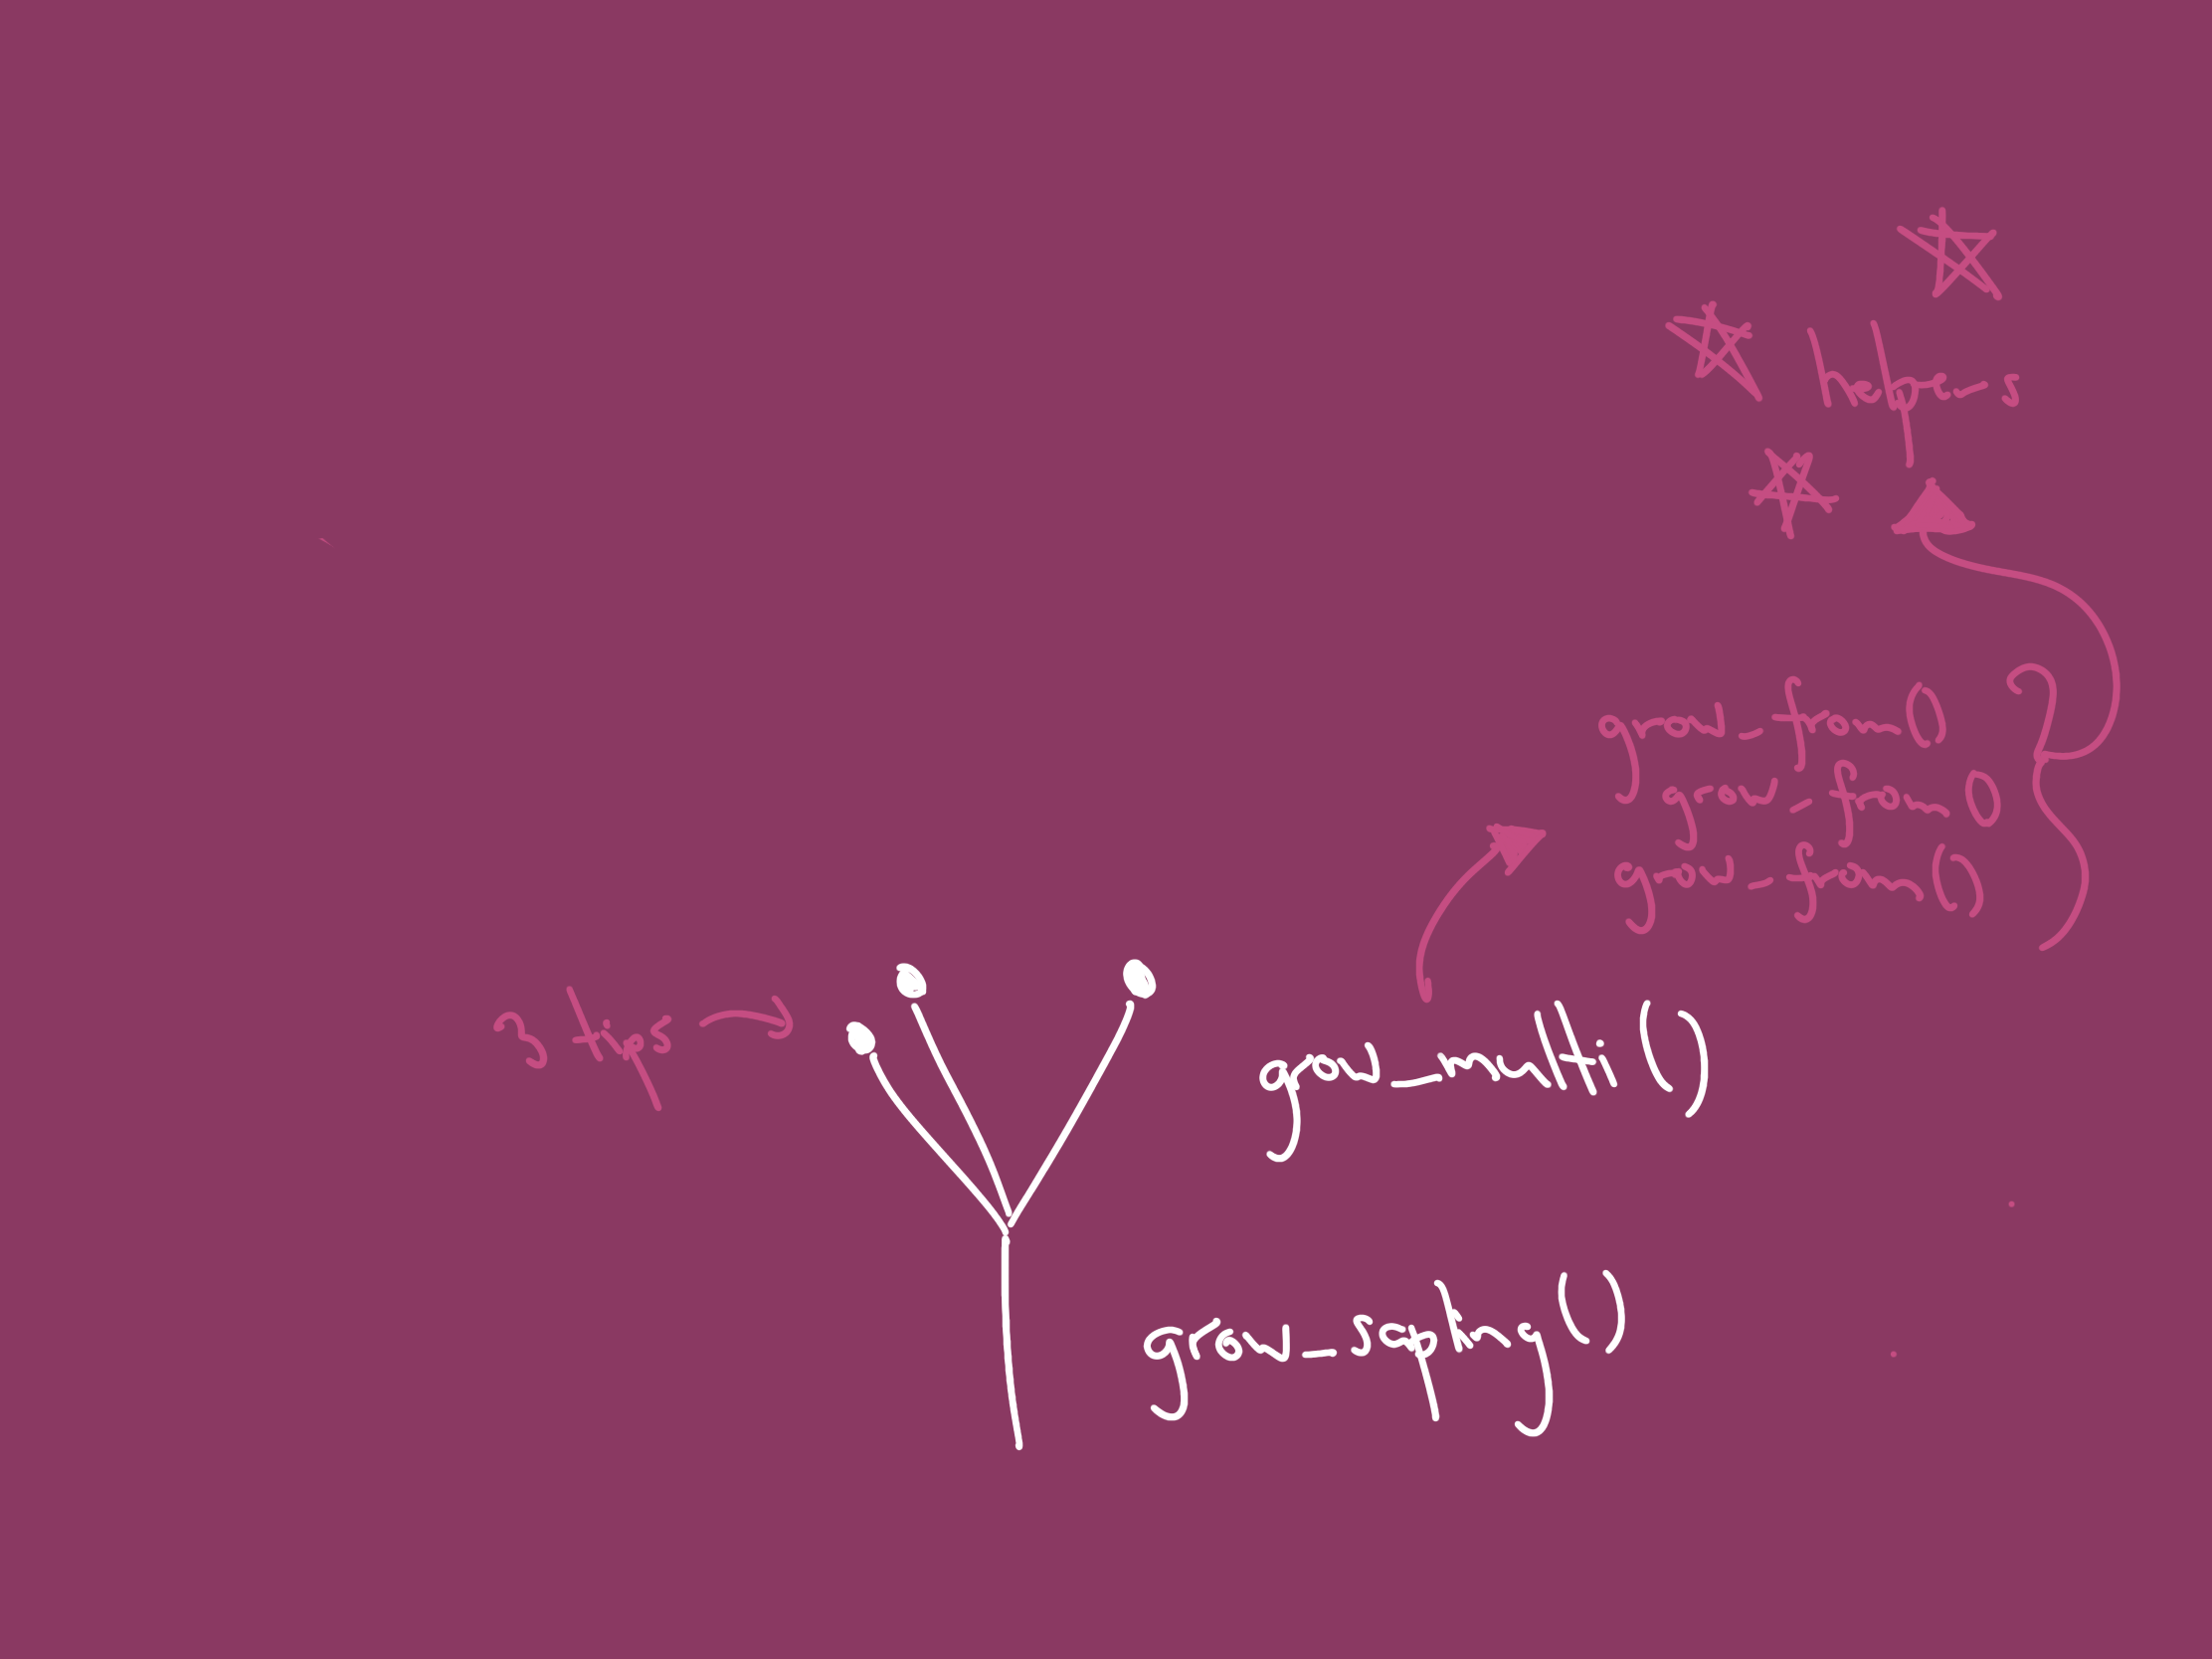 helpers
grow_from()
grow_from()
grow_from()
3 tips →
grow_multi()
grow_sapling()